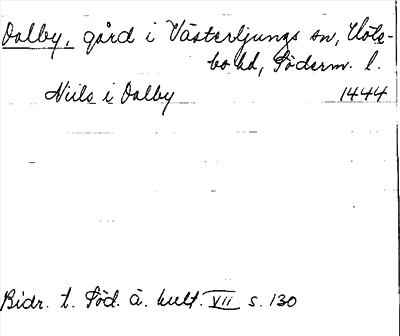 Dalby, gård i Västerljungs sn, Höle-
bo hd, Söderm. l.
Niils i Dalby 1444
Bidr. t. Söd. ä. kult. VII s. 130